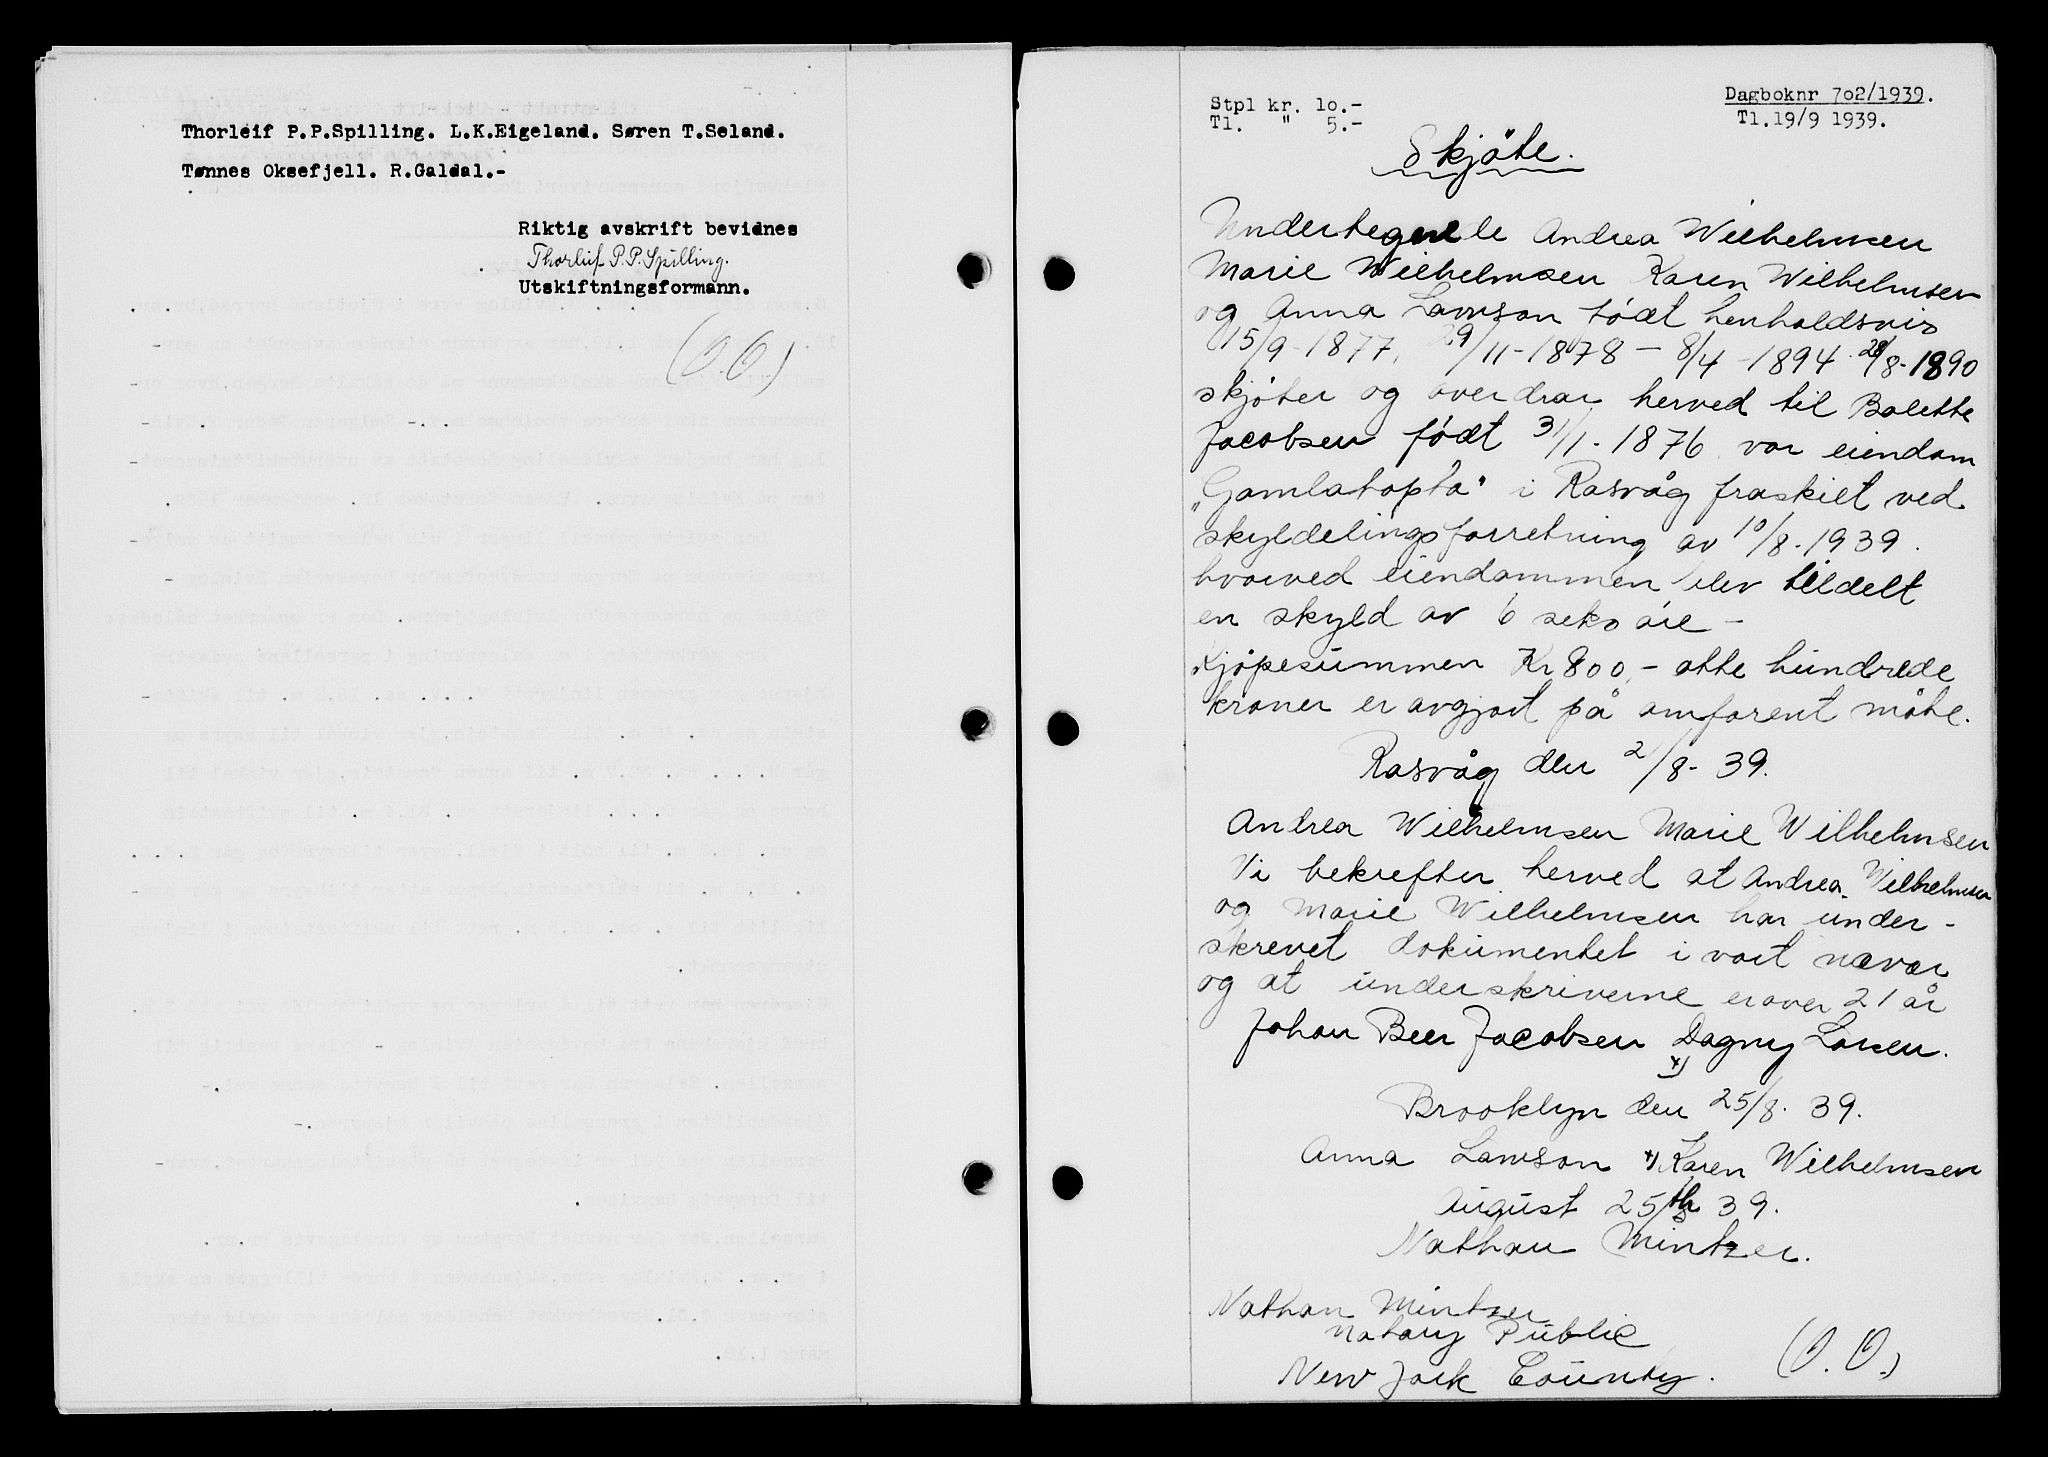 Thorleif P.P.Spilling. L.K.Eigeland. Søren T.Seland.
Tønnes Oksefjell. R.Galdal.-
Riktig avskrift bevidnes
Thorleif P.P.Spilling.
Utskiftningsformann.
(O.O)
Stpl kr. lo.-
Tl. " 5.-
Dagboknr 7o2/1939.
Tl.19/9 1939.
Skjöte.
Undertegnede Andrea Wilhelmsen
Marie Wilhelmsen Karen Wilhelmsen
og Anna Lawson födt henholdsvis
15/9-1877, 29/11-1878 - 8/4-1894. 28/8-1890
skjöter og overdrar herved til Bolette
Jacobsen födt 31/1-1876 vor eiendom
"Gamlatofta" i Rasvåg fraskilt ved
skyldelingsforretning av 10/8-1939.
hvorved eiendommen blev tildelt
en skyld av 6 seks öre -
Kjöpesummen Kr 800,- otte hundrede
kroner er avgjort på omforent måte.
Rasvåg den 2/8- 39.
Andrea Wilhelmsen Marie Wilhelmsen
Vi bekrefter herved at Andrea Wilhelmsen
og Marie Wilhelmsen har under-
skrevet dokumentet i vort nævær
og at underskriverne er over 21 år
Johan Beer Jacobsen Dagny Larsen.
x)
Brooklyn den 25/8. 39.
Anna Lawson x) Karen Wilhelmsen
August 25th 39.
Nathan Mintzer.
Nathan Mintzer
Notary Public
New York County.
(O.O.)